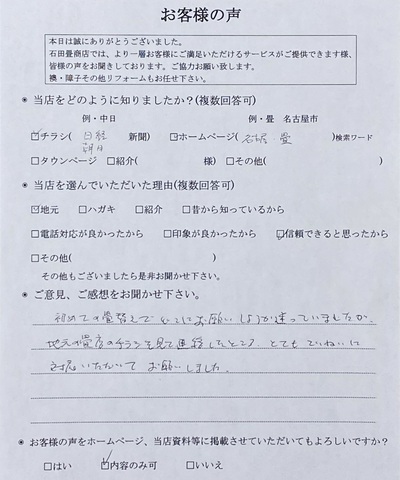 お客様の声
本日は誠にありがとうございました。
石田畳商店では、より一層お客様にご満足いただけるサービスがご提供できます様、
皆様の声をお聞きしております。ご協力お願い致します。
襖・障子その他リフォームもお任せ下さい。
◉ 当店をどのように知りましたか?(複数回答可)
例・中日 例・畳 名古屋市
☑チラシ( 日経 朝日 新聞) ☑ホームページ( 名古屋・畳 )検索ワード
□タウンページ □紹介( 様) □その他( )
◉ 当店を選んでいただいた理由(複数回答可)
☑地元 □ハガキ □紹介 □昔から知っているから
□電話対応が良かったから □印象が良かったから ☑信頼できると思ったから
□その他( )
その他もございましたら是非お聞かせ下さい。
◉ ご意見、ご感想をお聞かせ下さい。
初めての畳替えで どこにお願いしようか迷っていましたが、
地元の畳店のチラシを見て連絡したところ、とてもていねいに
対応いただいて お願いしました。
◉ お客様の声をホームページ、当店資料等に掲載させていただいてもよろしいですか?
□はい ☑内容のみ可 □いいえ